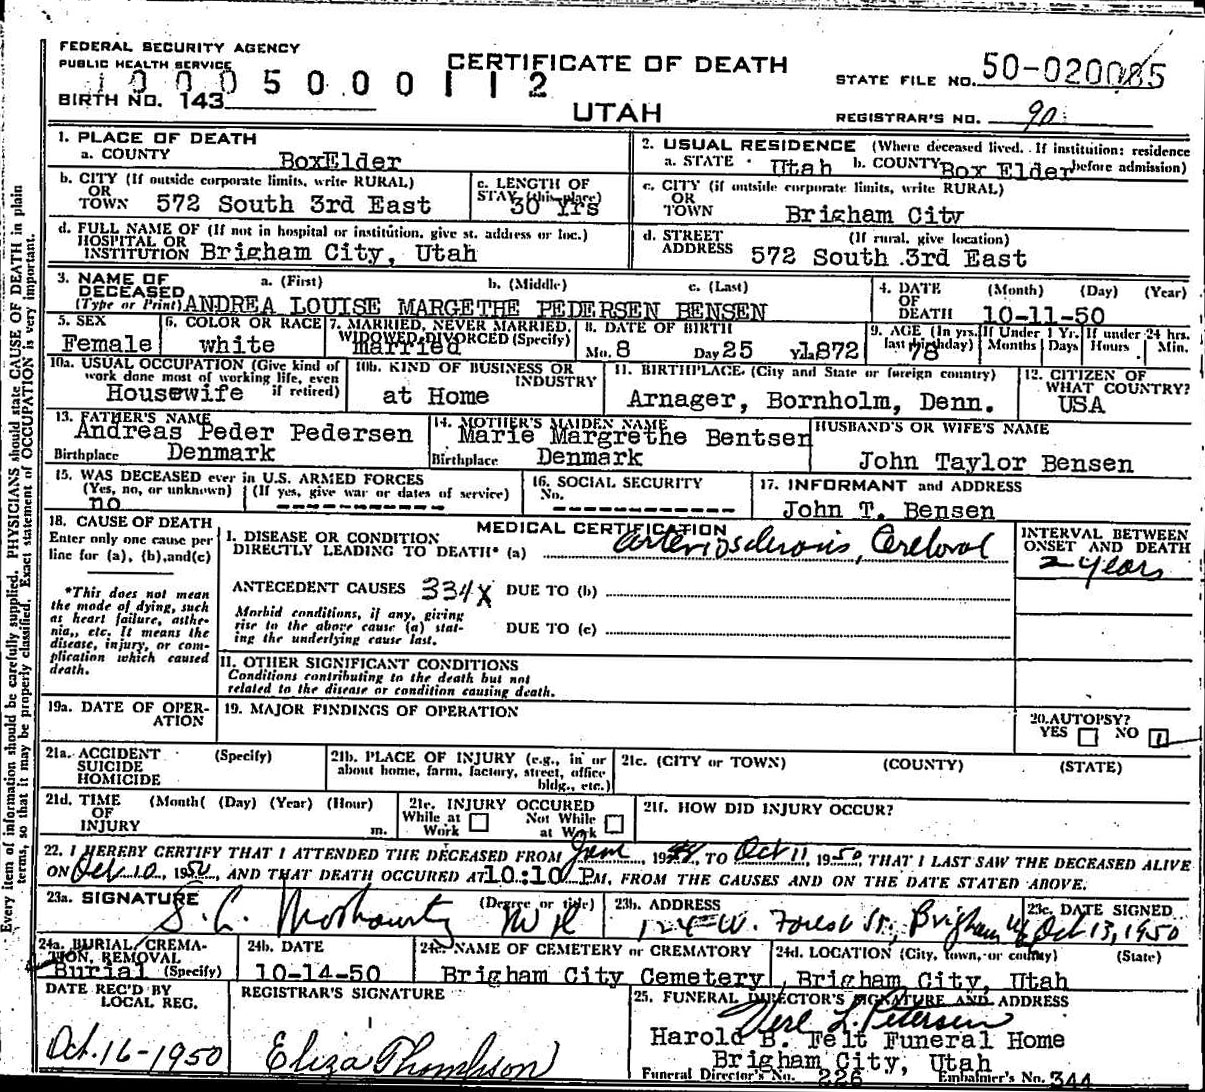 FEDERAL SECURITY AGENCY
PUBLIC HEALTH SERVICE
CERTIFICATE OF DEATH
STATE FILE NO. 50-020085
1 0 0 0 5 0 0 0 1 1 2
BIRTH NO. 143
UTAH
REGISTRAR'S NO. 90
1. PLACE OF DEATH
a. COUNTY BoxElder
2. USUAL RESIDENCE (Where deceased lived. If institution: residence before admission)
a. STATE Utah b. COUNTY Box Elder
b. CITY (If outside corporate limits, write RURAL) OR TOWN 572 South 3rd East
c. LENGTH OF STAY (this place) 30 Yrs
c. CITY (if outside corporate limits, write RURAL) OR TOWN Brigham City
d. FULL NAME OF (If not in hospital or institution, give st. address or loc.) HOSPITAL OR INSTITUTION Brigham City, Utah
d. STREET ADDRESS (If rural, give location) 572 South 3rd East
3. NAME OF DECEASED (Type or Print) a. (First) b. (Middle) c. (Last)
ANDREA LOUISE MARGETHE PEDERSEN BENSEN
4. DATE OF DEATH (Month) (Day) (Year) 10-11-50
5. SEX Female
6. COLOR OR RACE white
7. MARRIED, NEVER MARRIED, WIDOWED, DIVORCED (Specify) married
8. DATE OF BIRTH Mo. 8 Day 25 Yr. 1872
9. AGE (In yrs. last birthday) 78 If Under 1 Yr. Months Days If under 24 hrs. Hours Min.
10a. USUAL OCCUPATION (Give kind of work done most of working life, even if retired) Housewife
10b. KIND OF BUSINESS OR INDUSTRY at Home
11. BIRTHPLACE (City and State or foreign country) Arnager, Bornholm, Denn.
12. CITIZEN OF WHAT COUNTRY? USA
13. FATHER'S NAME Andreas Peder Pedersen
Birthplace Denmark
14. MOTHER'S MAIDEN NAME Marie Margrethe Bentsen
Birthplace Denmark
HUSBAND'S OR WIFE'S NAME
John Taylor Bensen
15. WAS DECEASED ever in U.S. ARMED FORCES
(Yes, no, or unknown) (If yes, give war or dates of service)
no
16. SOCIAL SECURITY No.
17. INFORMANT and ADDRESS
John T. Bensen
18. CAUSE OF DEATH
Enter only one cause per line for (a), (b), and (c)
MEDICAL CERTIFICATION
I. DISEASE OR CONDITION DIRECTLY LEADING TO DEATH* (a) Arteriosclerosis, Cerebral
INTERVAL BETWEEN ONSET AND DEATH
2 years
*This does not mean the mode of dying, such as heart failure, asthenia, etc. It means the disease, injury, or complication which caused death.
ANTECEDENT CAUSES 334X DUE TO (b)
Morbid conditions, if any, giving rise to the above cause (a) stating the underlying cause last.
DUE TO (c)
II. OTHER SIGNIFICANT CONDITIONS
Conditions contributing to the death but not related to the disease or condition causing death.
19a. DATE OF OPERATION
19. MAJOR FINDINGS OF OPERATION
20. AUTOPSY?
YES NO
21a. ACCIDENT SUICIDE HOMICIDE (Specify)
21b. PLACE OF INJURY (e.g., in or about home, farm, factory, street, office bldg., etc.)
21c. (CITY or TOWN) (COUNTY) (STATE)
21d. TIME OF INJURY (Month( (Day) (Year) (Hour) m.
21e. INJURY OCCURED
While at Work Not While at Work
21f. HOW DID INJURY OCCUR?
22. I HEREBY CERTIFY THAT I ATTENDED THE DECEASED FROM 19 , TO Oct 11, 1950, THAT I LAST SAW THE DECEASED ALIVE
ON Oct 10, 1950, AND THAT DEATH OCCURED AT 10:10 P.M. FROM THE CAUSES AND ON THE DATE STATED ABOVE.
23a. SIGNATURE (Degree or title)
23b. ADDRESS W. Forest St., Brigham
23c. DATE SIGNED Oct 13, 1950
24a. BURIAL, CREMATION, REMOVAL (Specify) Burial
24b. DATE 10-14-50
24c. NAME OF CEMETERY or CREMATORY Brigham City Cemetery
24d. LOCATION (City, town, or county) (State) Brigham City, Utah
DATE REC'D BY LOCAL REG.
Oct. 16-1950
REGISTRAR'S SIGNATURE
Eliza Thompson
25. FUNERAL DIRECTOR'S SIGNATURE AND ADDRESS
Verl L. Petersen
Harold B. Felt Funeral Home
Brigham City, Utah
Funeral Director's No. 226 Embalmer's No. 344
Every item of information should be carefully supplied. PHYSICIANS should state CAUSE OF DEATH in plain
terms, so that it may be properly classified. Exact statement of OCCUPATION is very important.